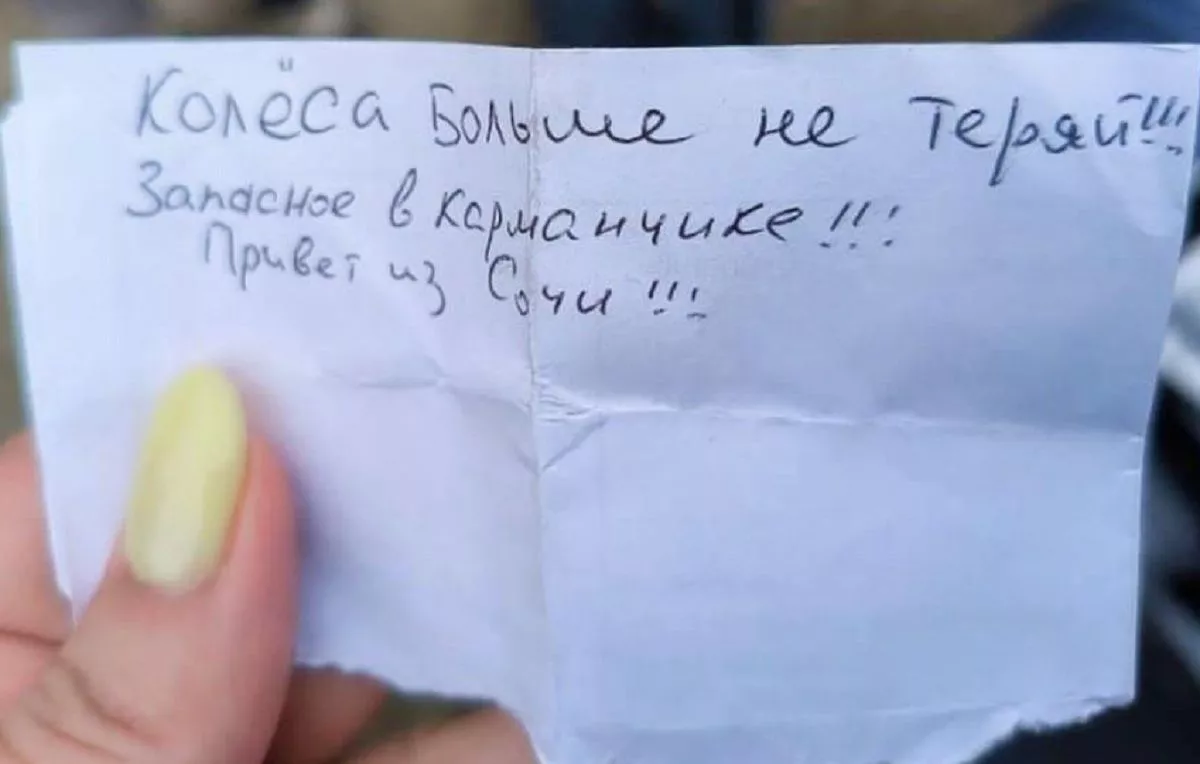 Колёса Больше не Теряй!!!
Запасное в карманчике!!!
Привет из Сочи!!!